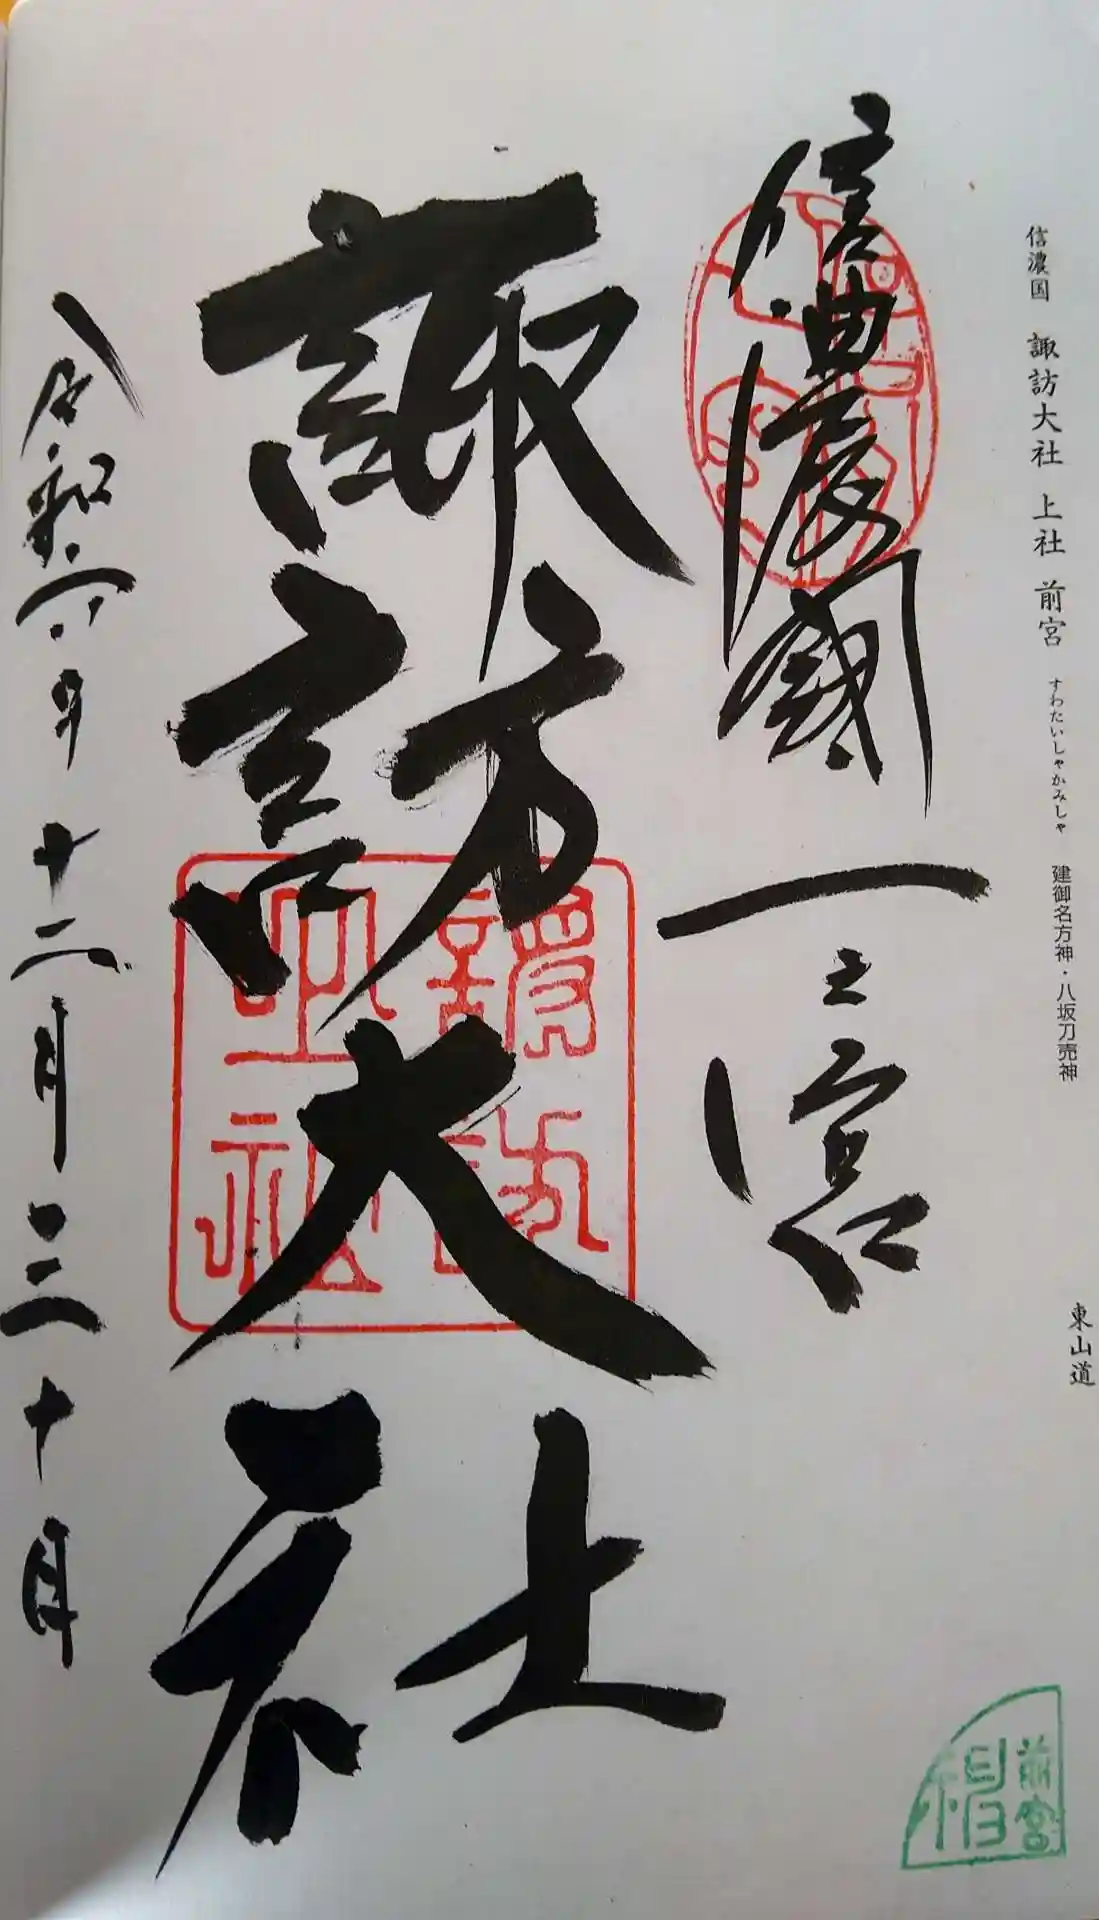 信濃国 諏訪大社 上社 前宮 すわたいしゃかみしゃ 建御名方神・八坂刀売神 東山道
信濃國一之宮
諏訪大社
諏訪
大社
前宮
令和六年十二月三十日